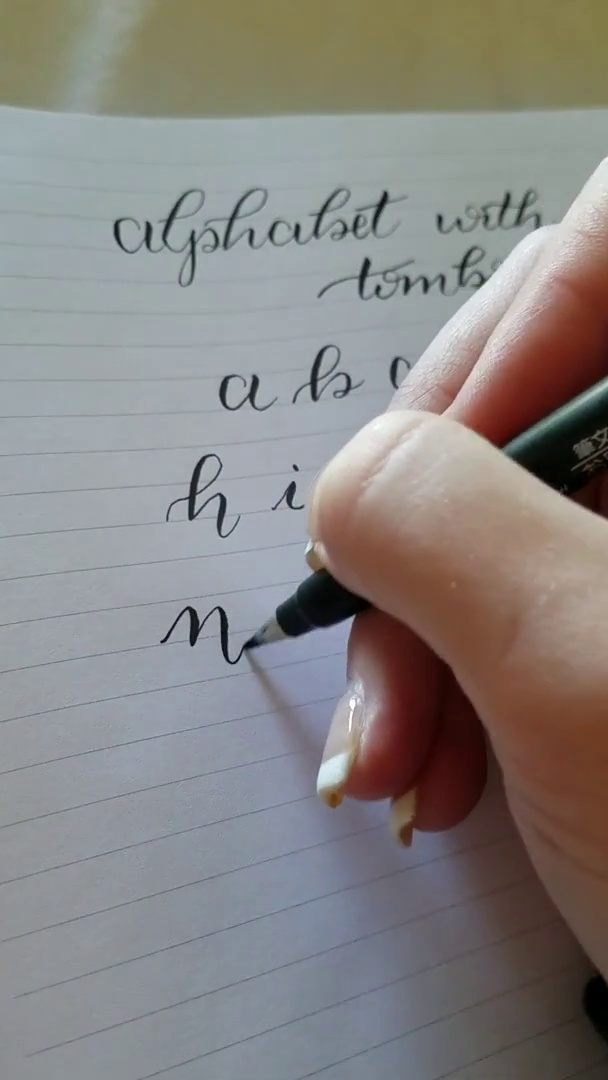 alphabet with
a b
h i
n